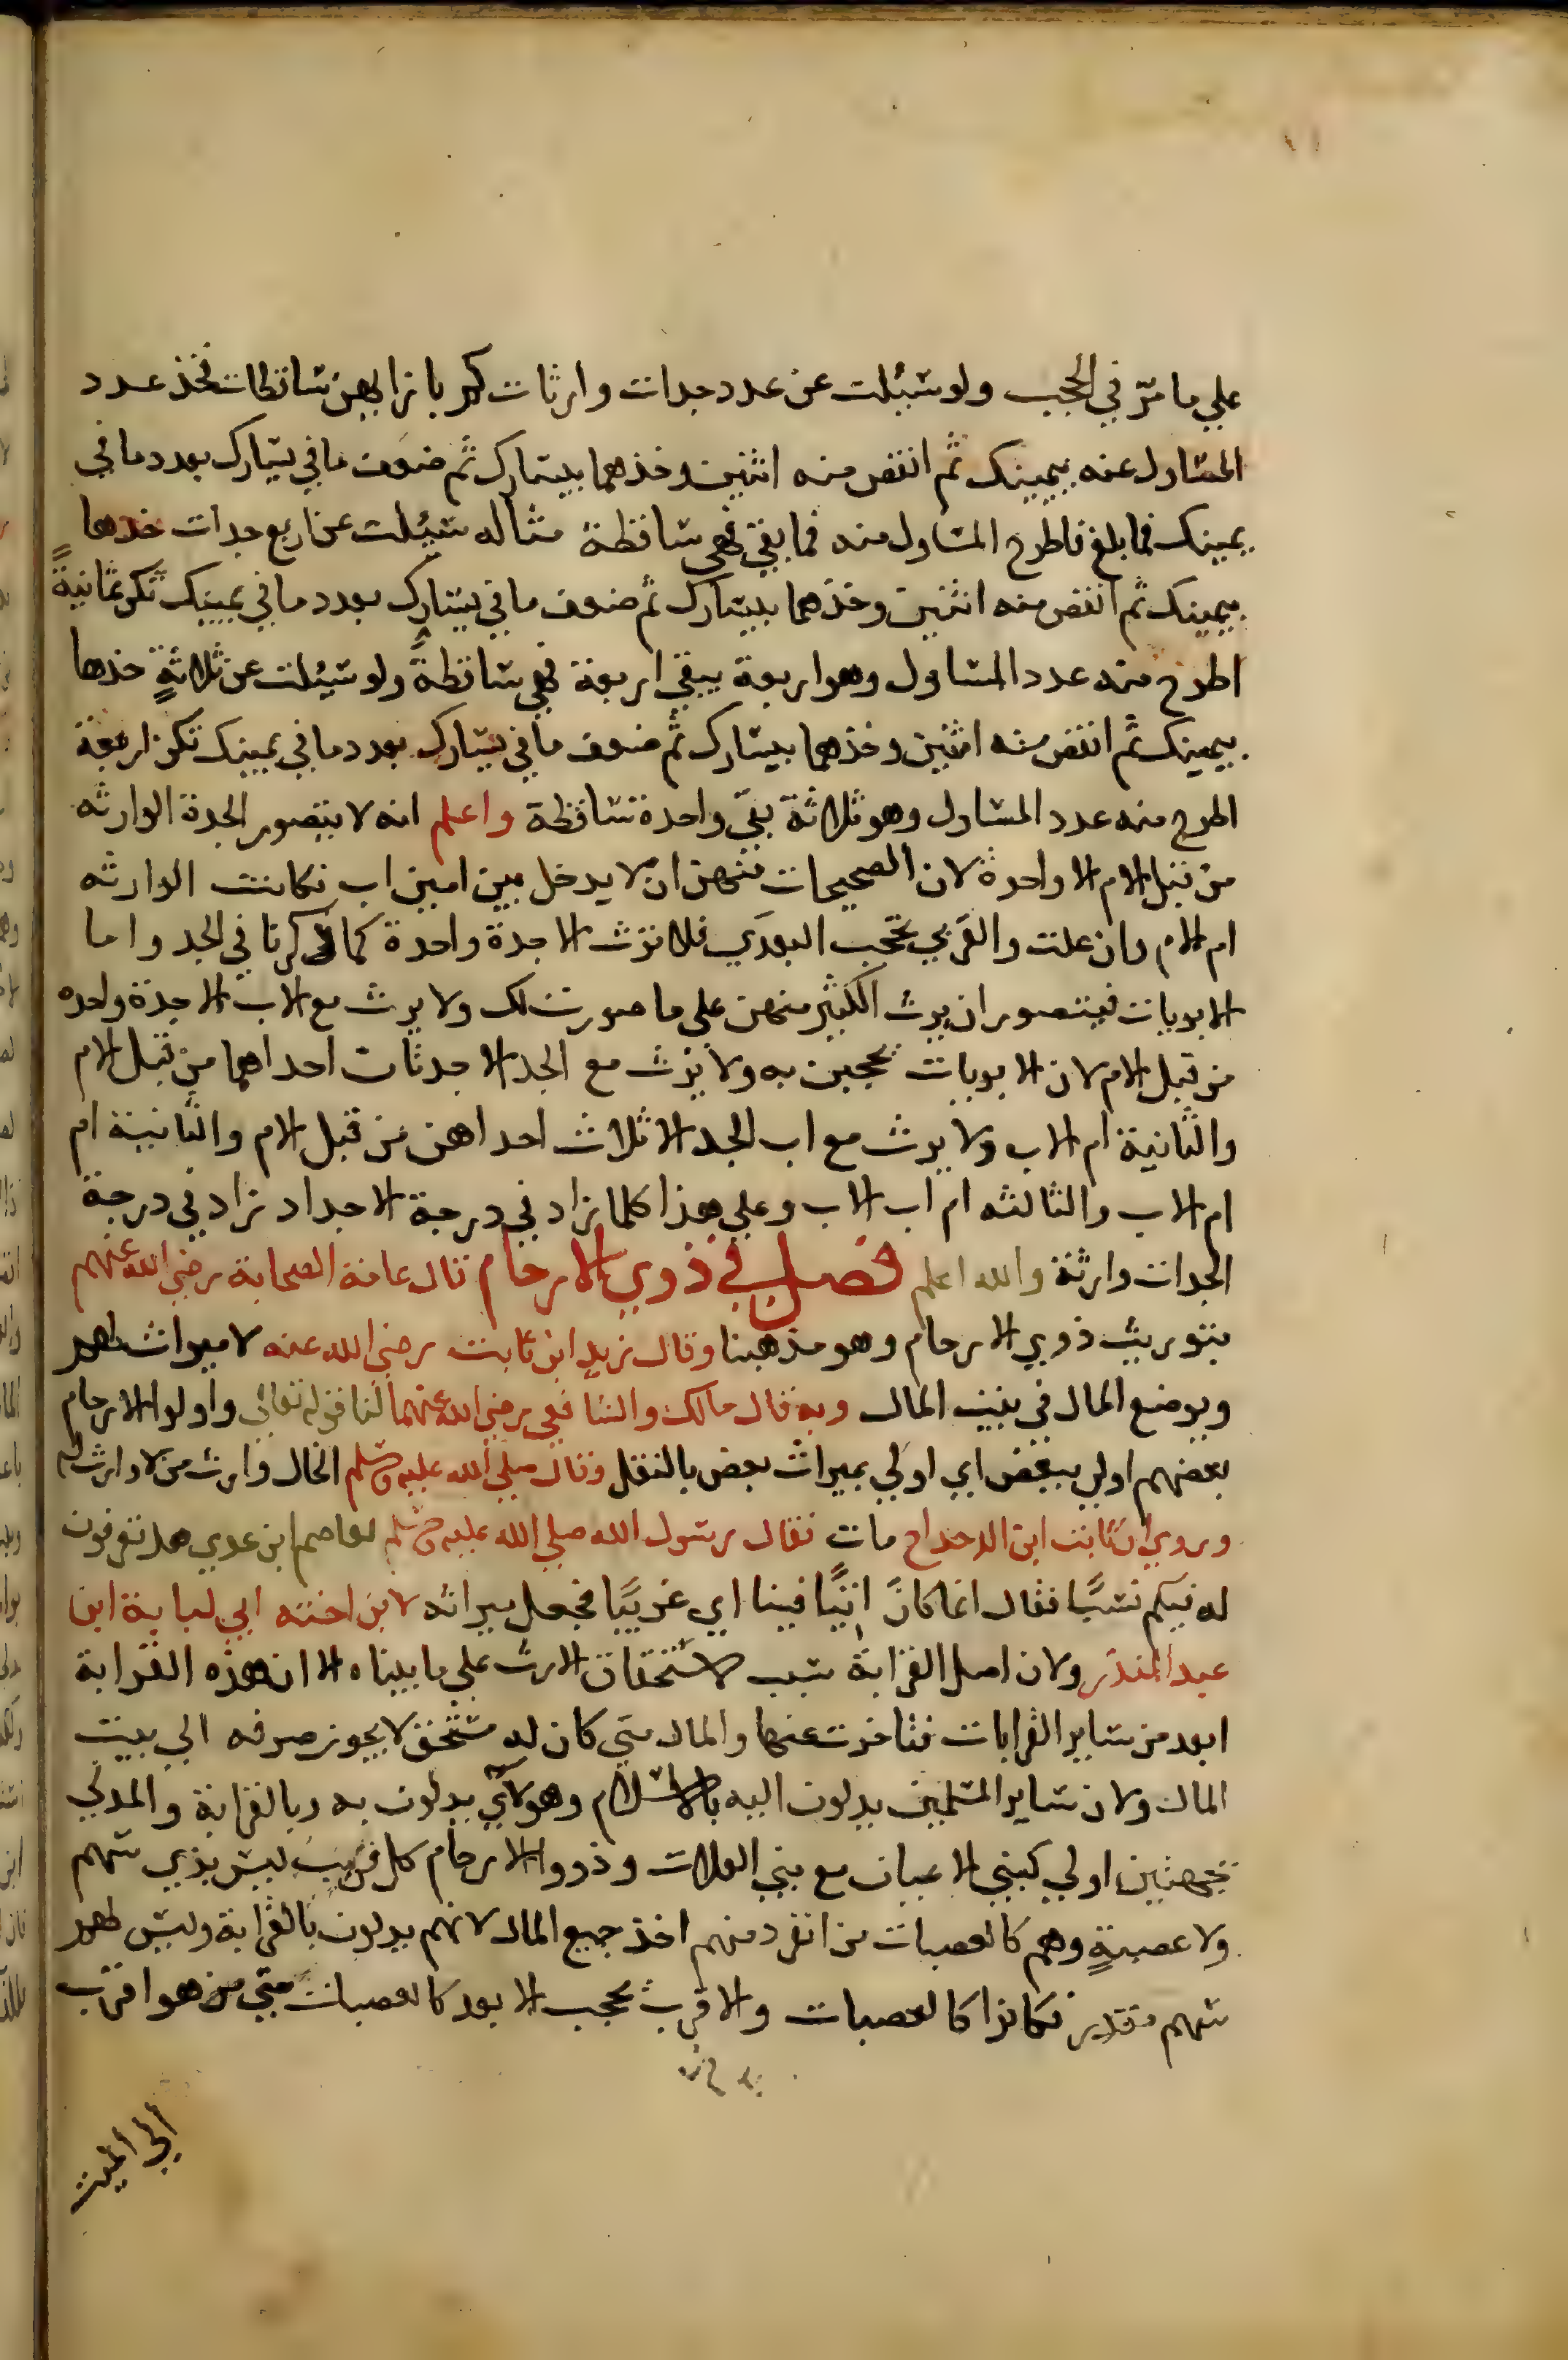 علي ما مرّ في الحجب ولو سئلت عن عدد جدات وارثات كم بازايهن ساقطات فخذ عدد
المسئول عنه بيمينك ثم انقص منه اثنين وخذهما بيسارك ثم ضعف ما في يسارك بعدد ما في
يمينك فما بلغ فاطرح المسئول منه فما بقي فهي ساقطة مثاله سئلت عن اربع جدات خذها
بيمينك ثم انقص منه اثنين وخذهما بيسارك ثم ضعف ما في يسارك بعدد ما في يمينك تكن ثمانيةً
اطرح منه عدد المسئول وهو اربعة يبقي اربعة فهي ساقطةً ولو سئلت عن ثلاثةٍ خذها
بيمينك ثم انقص منه اثنين وخذهما بيسارك ثم ضعف ما في يسارك بعدد ما في يمينك تكن اربعة
اطرح منه عدد المسئول وهو ثلاثة بقي واحدة ساقطة واعلم انه لا يتصور الجدة الوارثه
من قبل الام الا واحدة لان الصحيحات منهن ان لا يدخل بين امين اب فكانت الوارثه
ام الام وان علت والقربي تحجب البعدي فلا ترث الا جدة واحدة كما ذكرنا في الجد واما
الابويات فيتصور ان يرث الكثير منهن علي ما صورت لك ولا يرث مع الاب الا جدة واحده
من قبل الام لان الابويات يحجبن به ولا يرث مع الجد الا جدتان احداهما من قبل الام
والثانية ام الاب ولا يرث مع اب الجد الا ثلاث احداهن من قبل الام والثانية ام
ام الاب والثالثه ام اب الاب وعلي هذا كلما زاد في درجة الاجداد زاد في درجة
الجدات وارثة والله اعلم فصل في ذوي الارحام قال عامة الصحابة رضي الله عنهم
بتوريث ذوي الارحام وهو مذهبنا وقال زيد ابن ثابت رضي الله عنه لا ميراث لهم
ويوضع المال في بيت المال وبه قال مالك والشافعي رضي الله عنهما لنا قوله تعالي واولوا الارحام
بعضهم اولي ببعض اي اولي بميراث بعض بالنقل وقال صلي الله عليه وسلم الخال وارث من لا وارث له
وروي ان ثابت ابن الدحداح مات فقال رسول الله صلي الله عليه وسلم لعاصم ابن عدي هل تعرفون
له فيكم نسبًا فقال انما كان اتيًا فينا اي غريبًا فجعل ميراثه لابن اخته ابي لبابة ابن
عبد المنذر ولان اصل القرابة سبب لاستحقاق الارث علي ما بيناه الا ان هذه القرابة
ابعد من ساير القرابات فتاخرت عنها والمال متي كان له مستحق لا يجوز صرفه الي بيت
المال ولان ساير المسلمين يدلون اليه بالاسلام وهولاي يدلون به وبالقرابة والمدلي
بجهتين اولي كبني الاعيان مع بني العلات وذووا الارحام كل قريب ليس بذي سهم
ولا عصبةٍ وهم كالعصبات من انفرد منهم اخذ جميع المال لانهم يدلون بالقرابة وليس لهم
سهم مقدر فكانوا كالعصبات والاقرب يحجب الابعد كالعصبات متي من هو اقرب
الي الميت